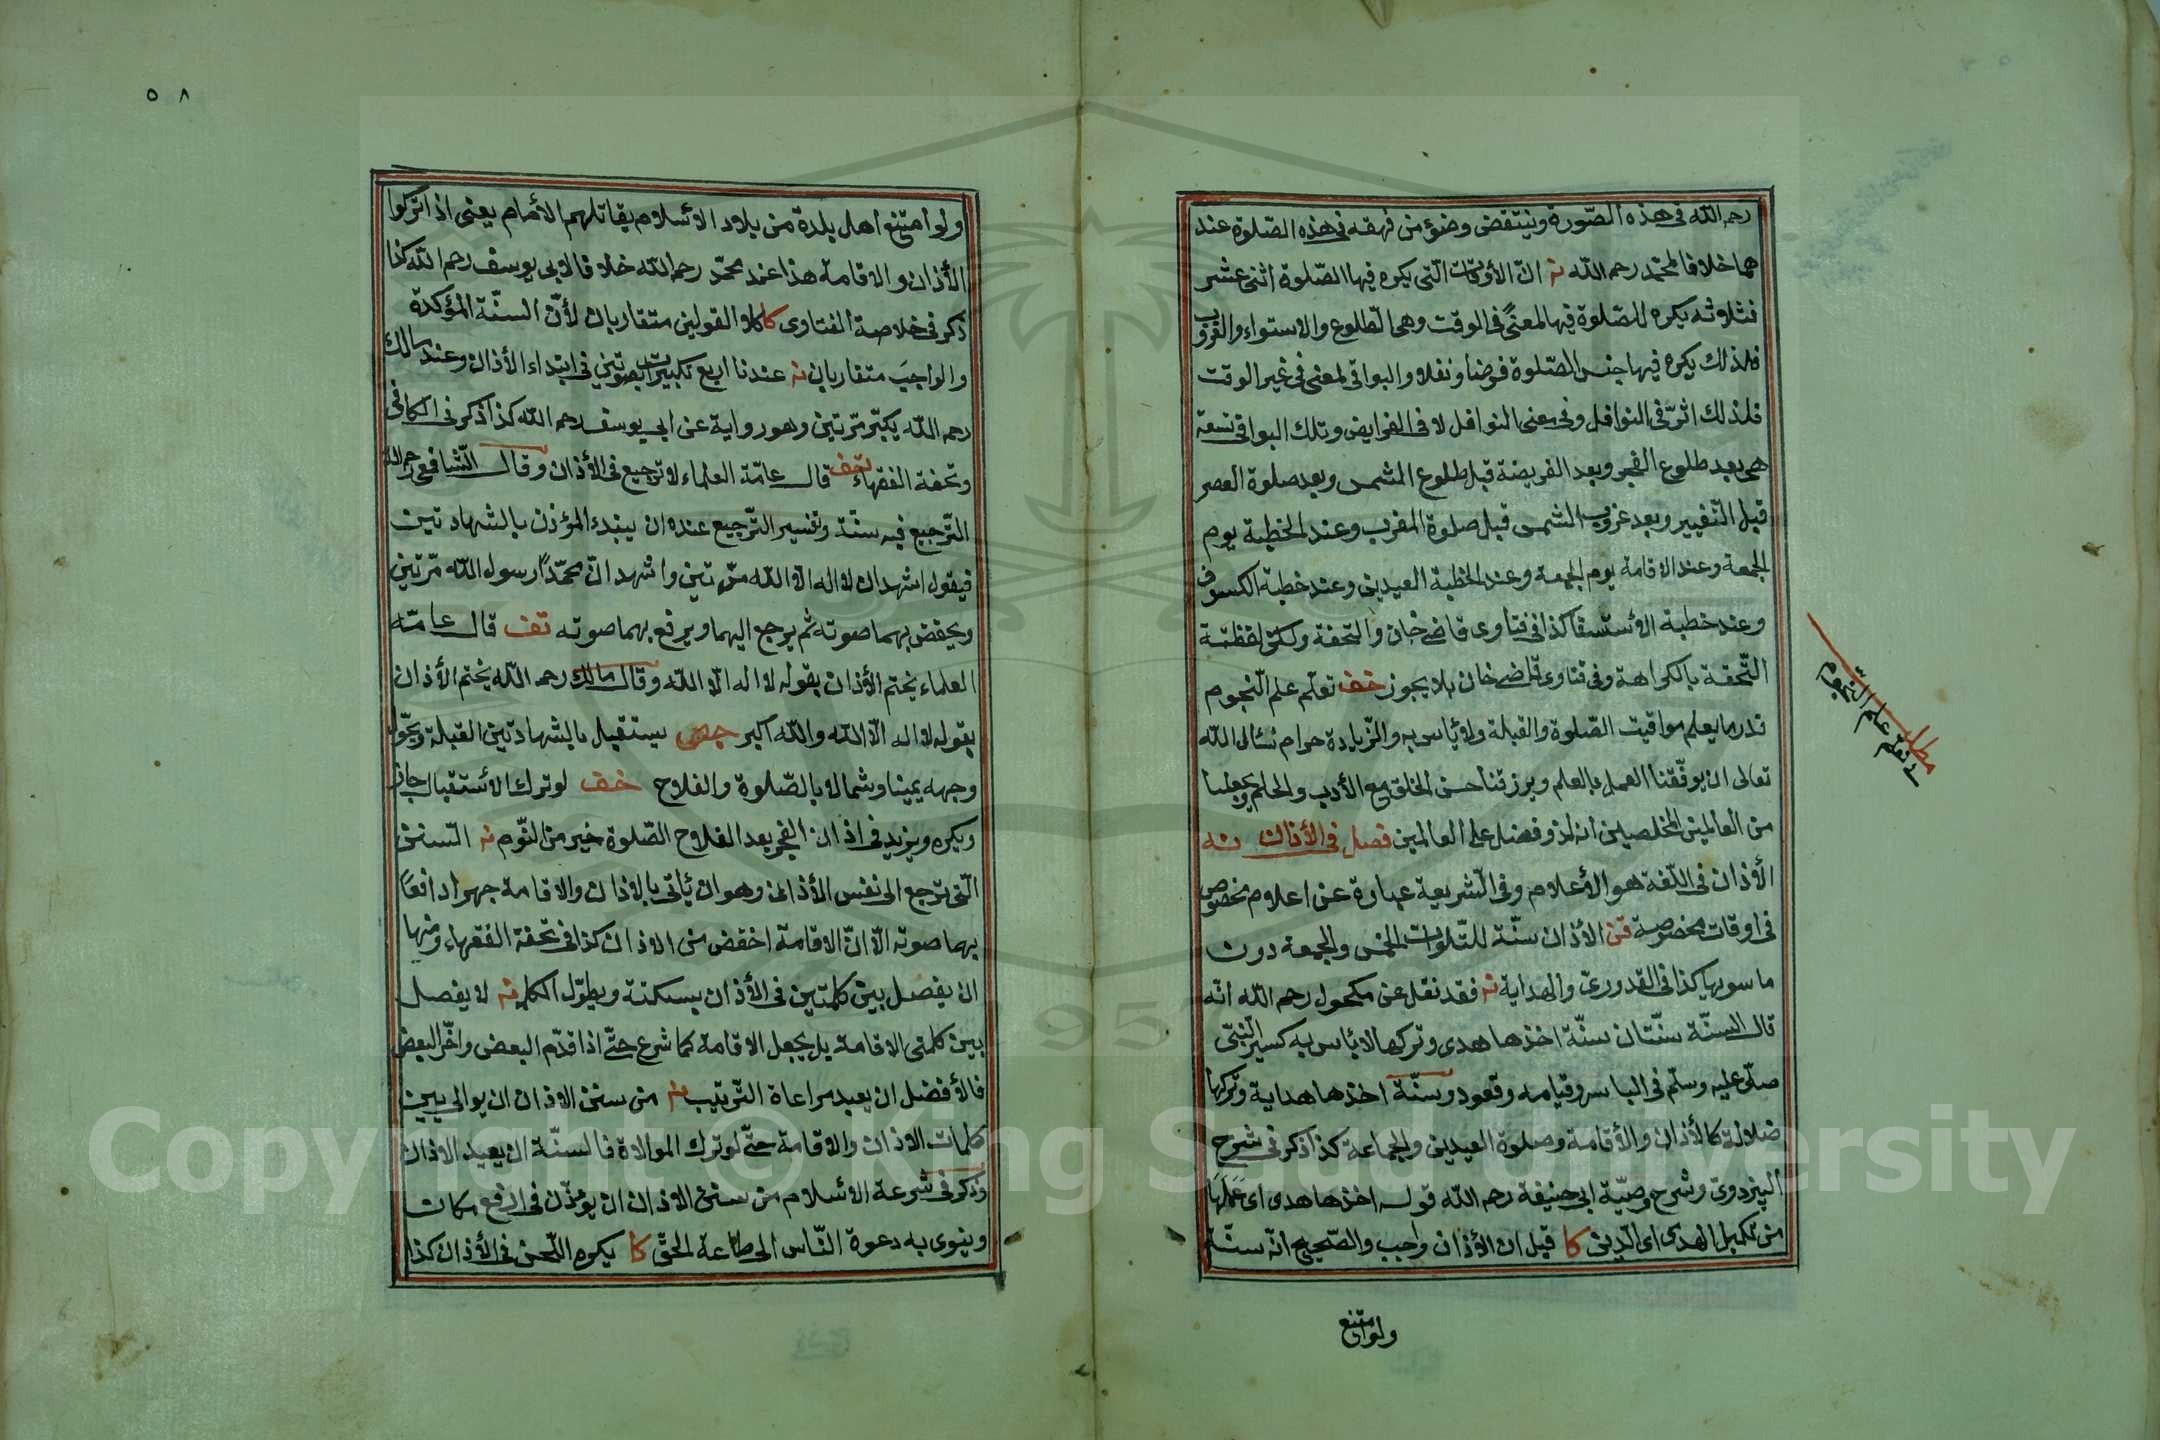 رحمه الله فى هذه الصّورة وينتقض وضوء من قهقه فى هذه الصّلوة عند
هما خلافا لمحمّد رحمه الله نه انّ الأوقات الّتى يكره فيها الصّلوة اثنى عشر
فثلاثة يكره الصّلوة فيها لمعنًى فى الوقت وهى الطّلوع والاستواء والغروب
فلذلك يكره فيها جنس الصّلوة فرضا ونفلا والبواقى لمعنى فى غير الوقت
فلذلك اثّر فى النوافل وفى معنى النوافل لا فى الفرايض وتلك البواقى تسعة
هى بعد طلوع الفجر وبعد الفريضة قبل طلوع الشمس وبعد صلوة العصر
قبل التّغيير وبعد غروب الشمس قبل صلوة المغرب وعند الخطبة يوم
الجمعة وعند الاقامة يوم الجمعة وعند الخطبة العيدين وعند خطبة الكسوف
وعند خطبة الاستسقا كذا فى فتاوى قاضى خان والتحفة ولكن لفظة
التّحفة بالكراهة وفى فتاوى قاضى خان بلا يجوز خف تعلّم علم النّجوم
قدر ما يعلم مواقيت الصّلوة والقبلة ولا بأس به والزّيادة حرام نسأل الله
تعالى ان يوفّقنا العمل بالعلم ويرزقنا حسن الخلق مع الأدب والحلم ويجعلنا
من العالمين المخلصين انه لذو فضل على العالمين فصل فى الأذان نه
الأذان فى اللّغة هو الأعلام وفى الشّريعة عبارة عن اعلام مخصوص
فى اوقات مخصوصة قن الأذان سنّة للصّلوات الخمس والجمعة دون
ما سويها كذا فى القدورىّ والهداية نه فقد نقل عن مكحول رحمه الله انّه
قال السنّة سنّتان سنّة اخذها هدى وتركها لا بأس به كسير النّبىّ
صلّى عليه وسلّم فى الباسه وقيامه وقعوده وسنّة اخذها هداية وتركها
ضلالة كالأذان والأقامة وصلوة العيدين والجماعة كذا ذكر فى شرح
البزدوىّ وشرح وصيّة ابى حنيفة رحمه الله قوله اخذها هدى اى عملها
من تكميل الهدى اى الّدين كا قيل ان الأذان واجب والصّحيح انّه سنّة
ولو امتنع
مطلب
فى تعلّم علم النّجوم
٥٨
ولو امتنع اهل بلدة من بلاد الاسلام يقاتلهم الأمام يعنى اذا تركوا
الأذان والاقامة هذا عند محمّد رحمه الله خلافا لابى يوسف رحمه الله كذا
ذكر فى خلاصة الفتاوى كا كلا القولين متقاربان لأنّ السنّة المؤكدة
والواجب متقاربان نه عندنا اربع تكبيرات بصوتين فى ابتداء الأذان وعند مالك
رحمه الله يكبّر مرّتين وهو رواية عن ابى يوسف رحمه الله كذا ذكر فى الكافى
وتحفة الفقهاء تحف قال عامّة العلماء لا ترجيع فى الأذان وقال الشّافعى رحمه الله
التّرجيع فيه سنّة وتفسير التّرجيع عنده ان يبتدء المؤذن بالشهادتين
فيقول اشهد ان لا اله الا الله مرّتين واشهد انّ محمّدًا رسول الله مرّتين
ويخفض بهما صوته ثم يرجع اليهما ويرفع بهما صوته تف قال عامّة
العلماء يختم الأذان بقوله لا اله الّا الله وقال مالك رحمه الله يختم الأذان
بقوله لا اله الّا الله والله اكبر يستقبل بالشهادتين القبلة ويحوّل
وجهه يمينا وشمالا بالصّلوة والفلاح خف لو ترك الأستقبال جاز
ويكره ويزيد فى اذان الفجر بعد الفلاح الصّلوة خير من النّوم نه السنن
الّتى ترجع الى نفس الأذان وهو ان يأتى بالاذان والاقامة جهرا رافعًا
بهما صوته الّا انّ الاقامة اخفض من الاذان كذا فى تحفة الفقهاء ومنها
ان يفصل بين كلمتين فى الأذان بسكتة ويطوّل الكلام نه لا يفصل
بين كلمتى الاقامة بل يجعل الاقامة كما شرع حتّى اذا قدّم البعض واخّر البعض
فالأفضل ان يعيد مراعاة التّرتيب نه من سنن الاذان ان يوالى بين
كلمات الاذان والاقامة حتّى لو ترك الموالاة فالسنّة ان يعيد الاذان
وذكر فى شرعة الاسلام من سنن الاذان ان يؤذّن فى ارفع مكان
وينوى به دعوة النّاس الى طاعة الحقّ كا يكره اللّحن فى الأذان كذا
Copyright © King Saud University
1957